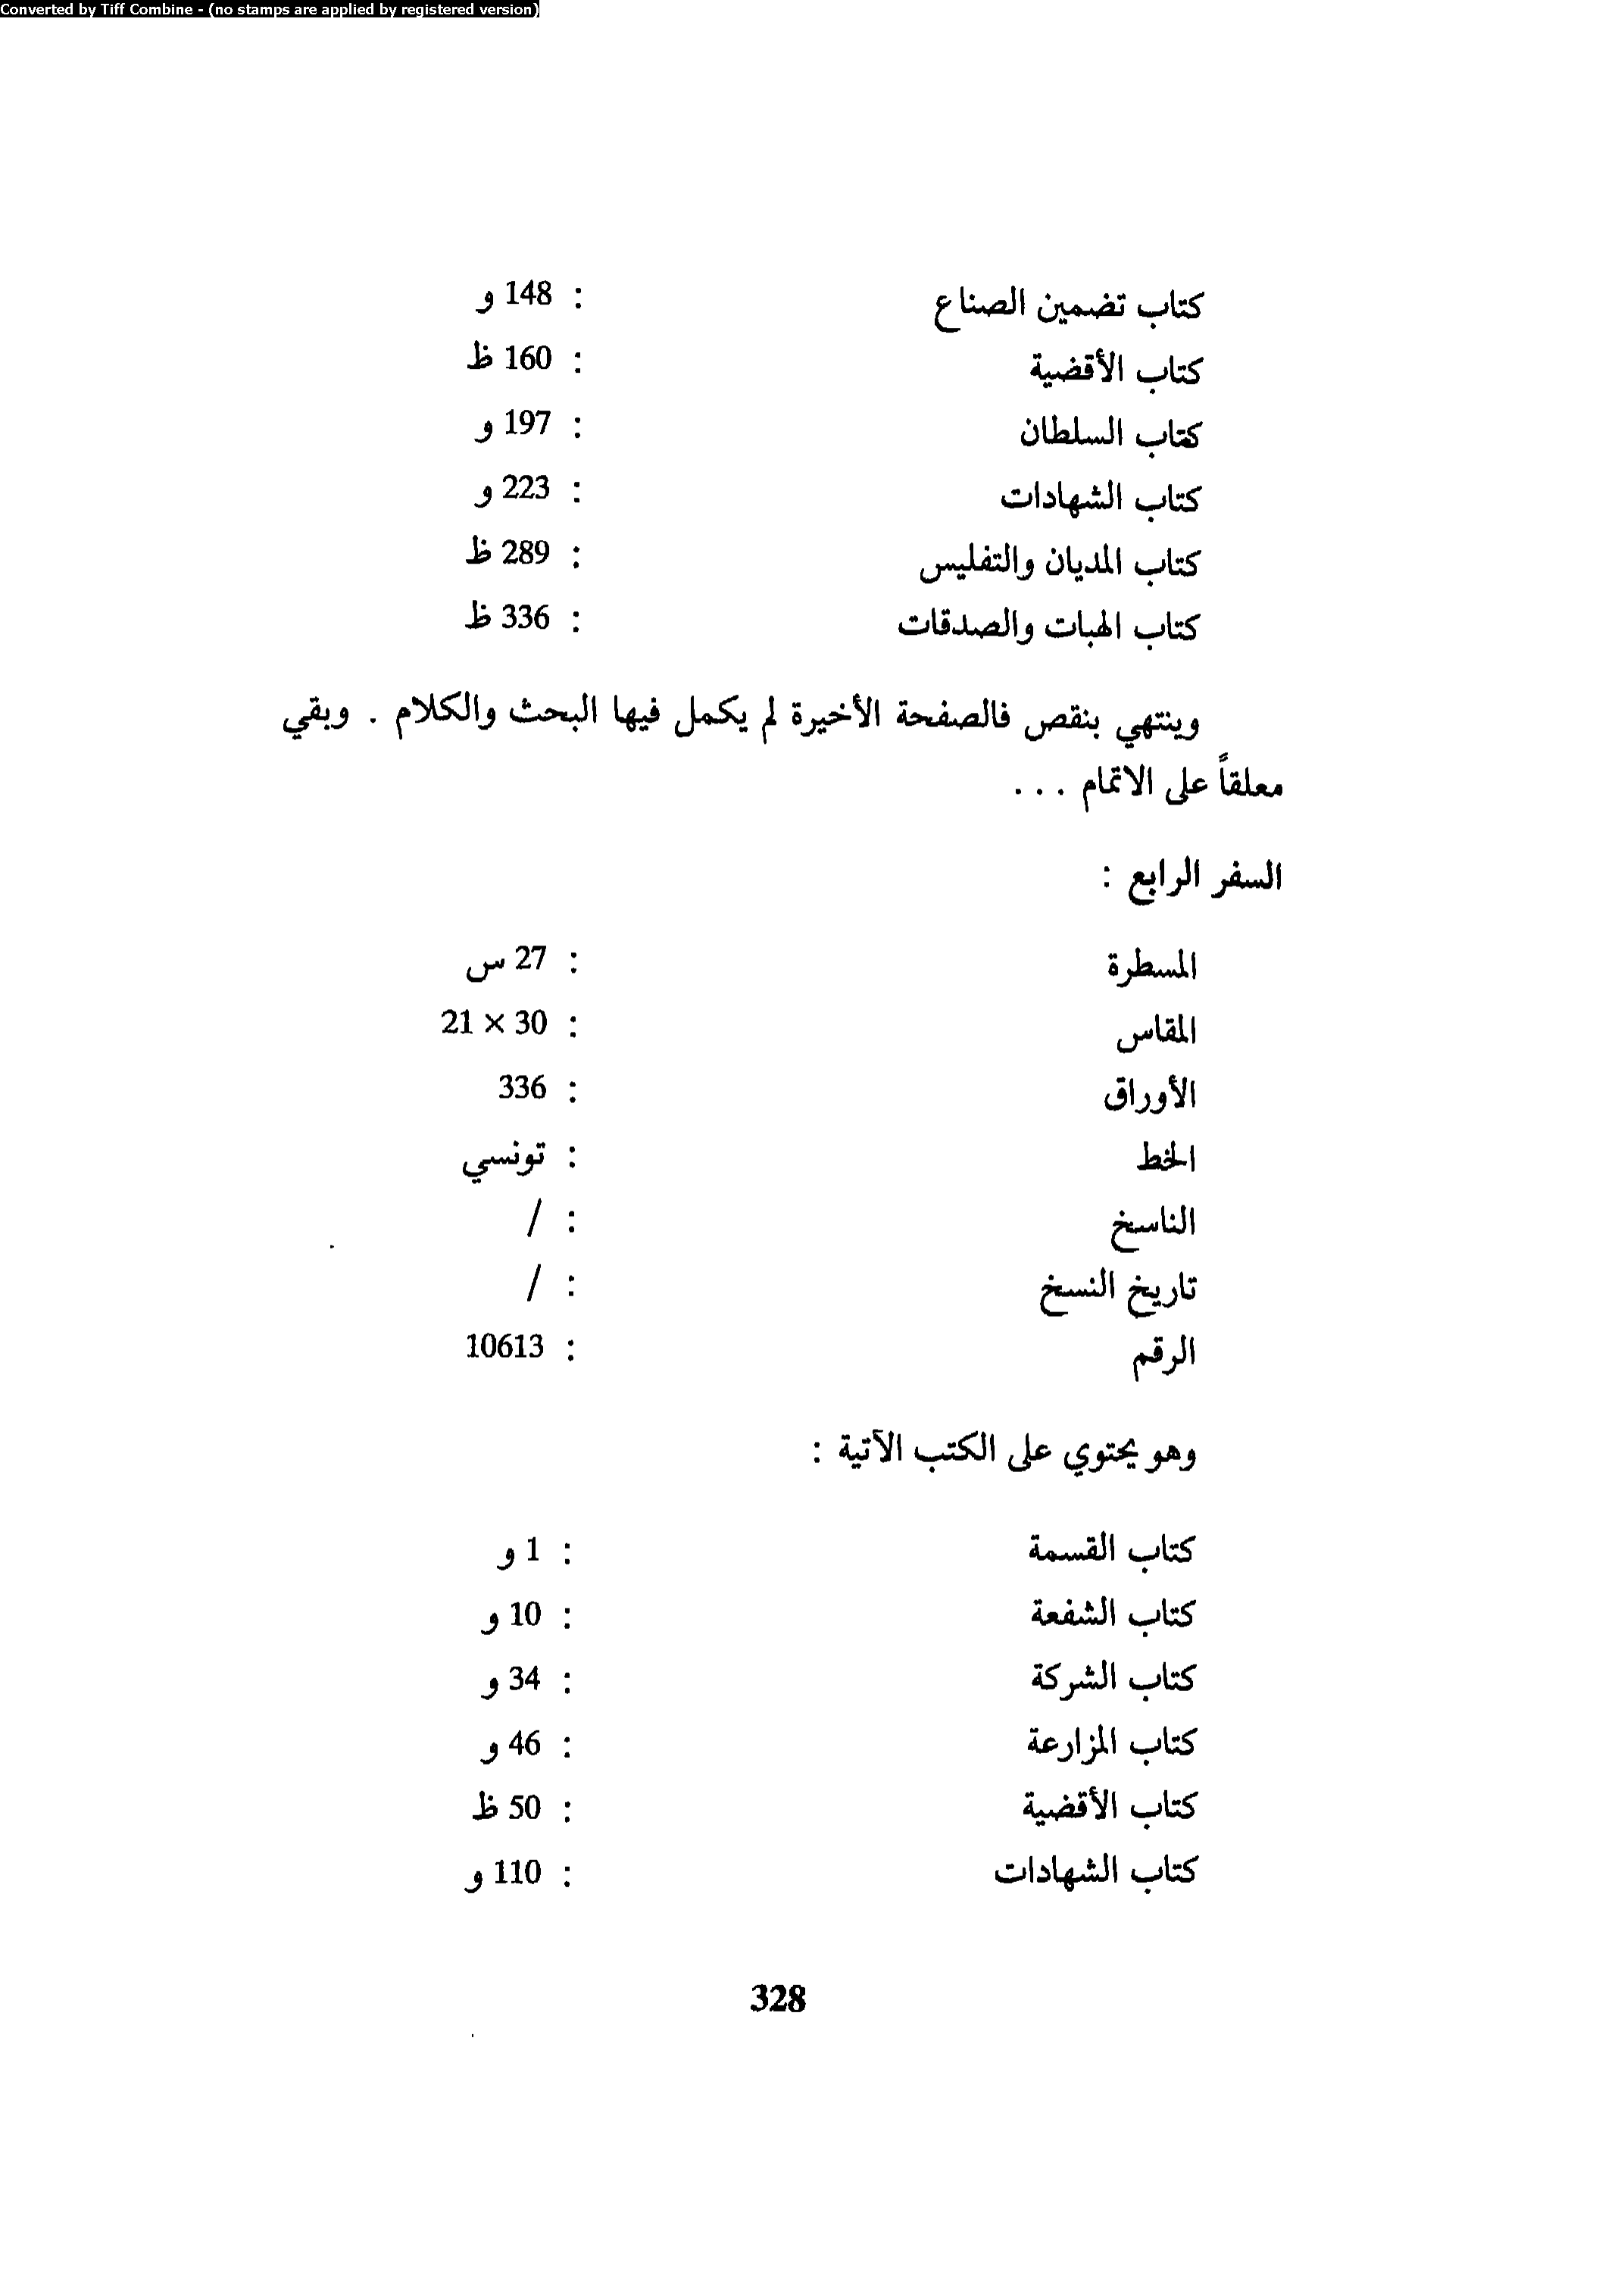 Converted by Tiff Combine - (no stamps are applied by registered version)
كتاب تضمين الصناع : 148 و
كتاب الأقضية : 160 ظ
كتاب السلطان : 197 و
كتاب الشهادات : 223 و
كتاب المديان والتفليس : 289 ظ
كتاب الهبات والصدقات : 336 ظ
وينتهي بنقص فالصفحة الأخيرة لم يكمل فيها البحث والكلام . وبقي
معلقاً على الاتمام . . .
السفر الرابع :
المسطرة : 27 س
المقاس : 30 × 21
الأوراق : 336
الخط : تونسي
الناسخ : /
تاريخ النسخ : /
الرقم : 10613
وهو يحتوي على الكتب الآتية :
كتاب القسمة : 1 و
كتاب الشفعة : 10 و
كتاب الشركة : 34 و
كتاب المزارعة : 46 و
كتاب الأقضية : 50 ظ
كتاب الشهادات : 110 و
328